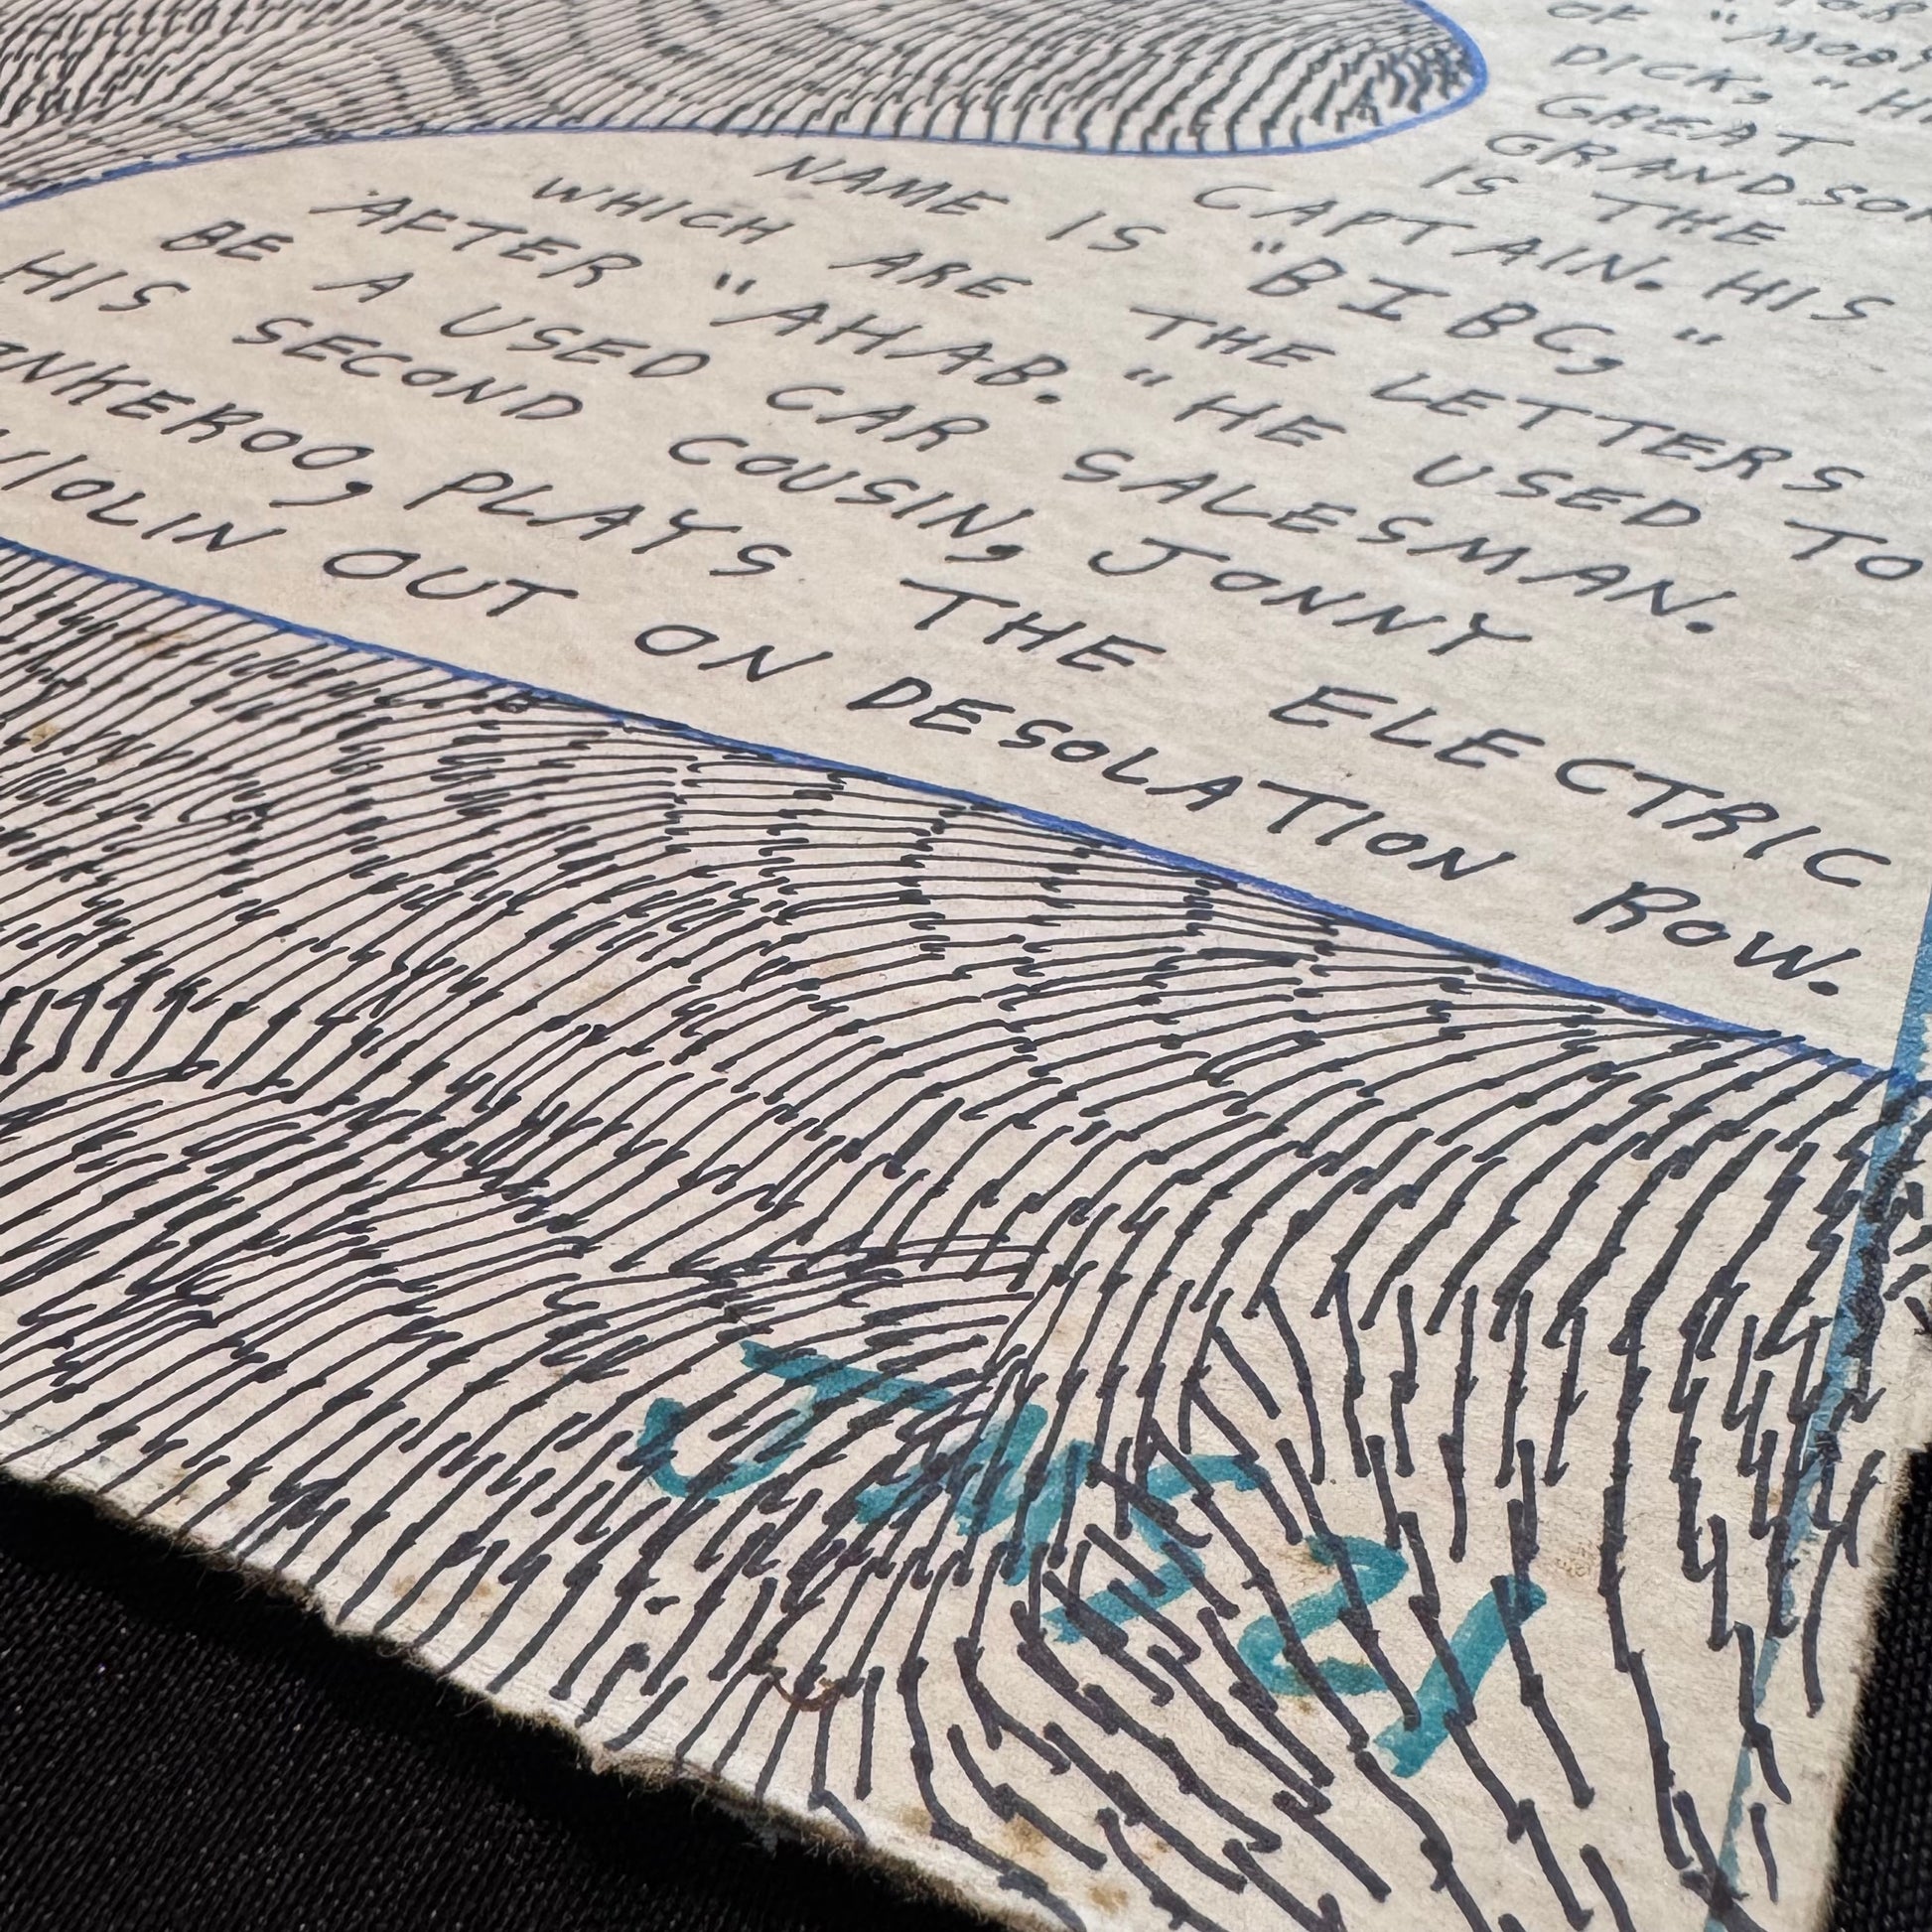 OF "MOBY
DICK,"
GREAT
GRANDSON
IS THE
CAPTAIN. HIS
NAME IS "BIBC,"
WHICH ARE THE LETTERS
AFTER "AHAB." HE USED TO
BE A USED CAR SALESMAN.
HIS SECOND COUSIN, JONNY
INKEROO, PLAYS THE ELECTRIC
VIOLIN OUT ON DESOLATION ROW.